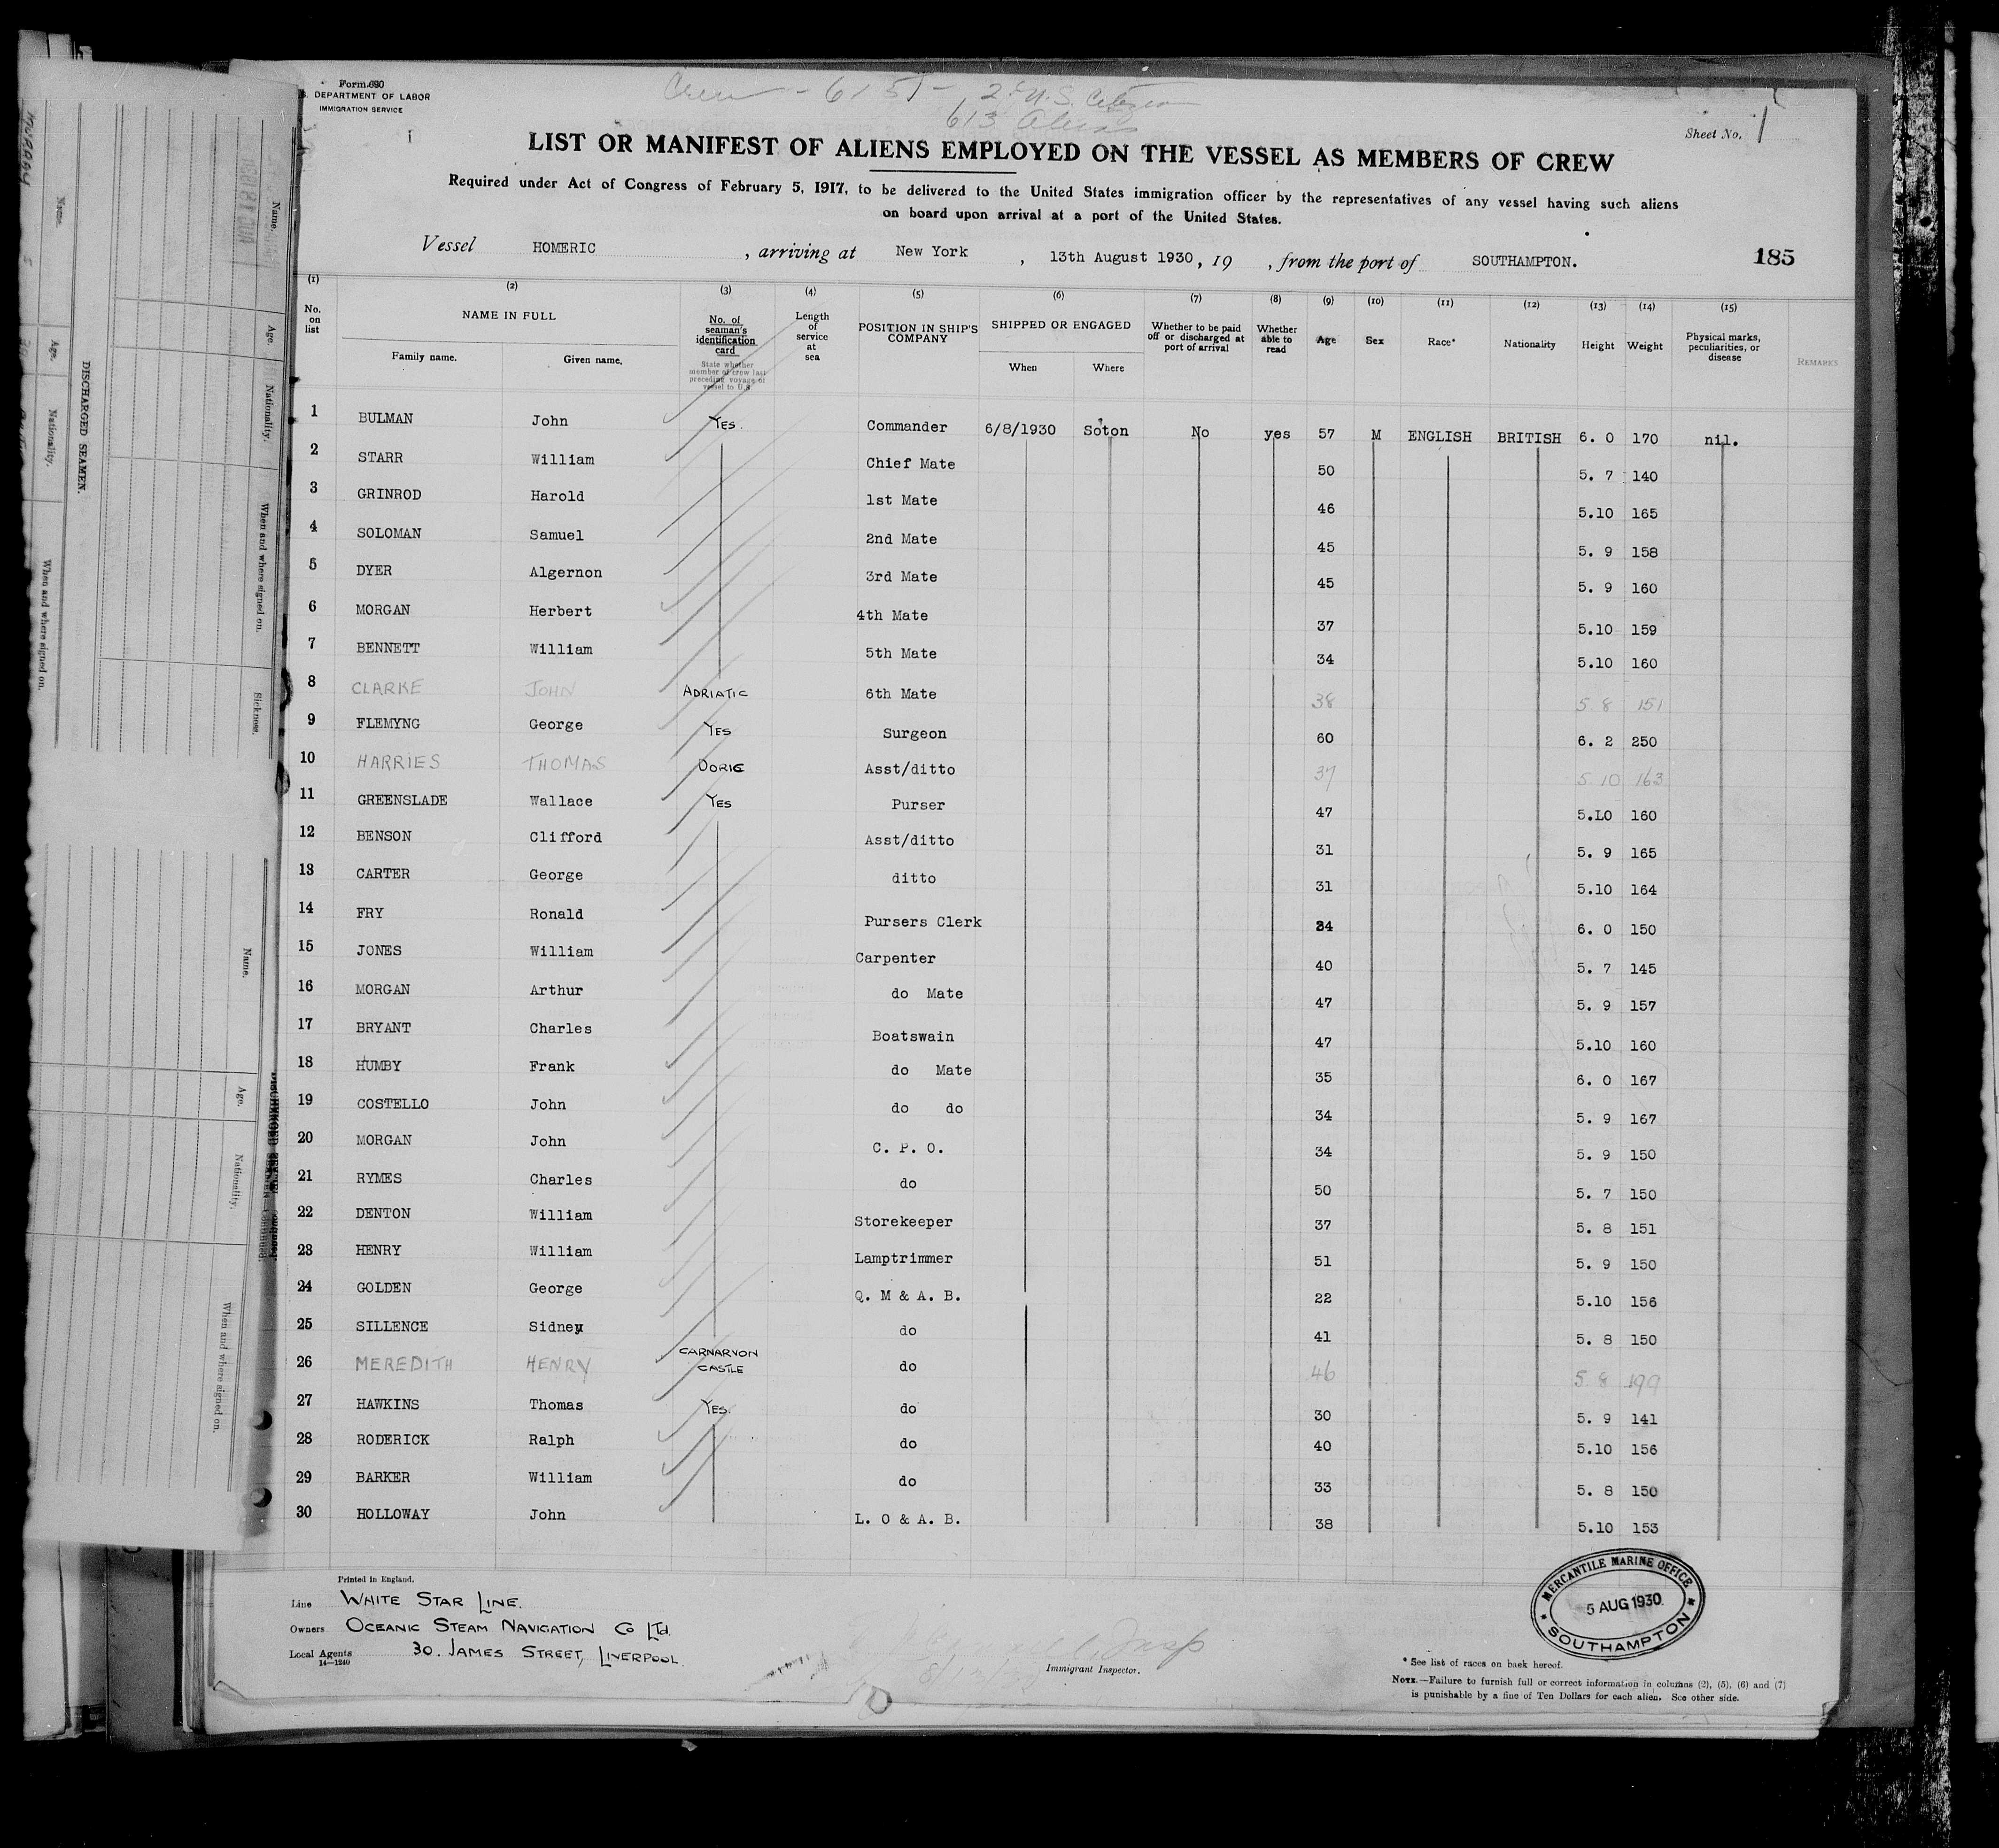 Form 690
DEPARTMENT OF LABOR
IMMIGRATION SERVICE
Crew - 615 - 2 U.S. Citizen
613 Aliens
Sheet No. 1
LIST OR MANIFEST OF ALIENS EMPLOYED ON THE VESSEL AS MEMBERS OF CREW
Required under Act of Congress of February 5, 1917, to be delivered to the United States immigration officer by the representatives of any vessel having such aliens
on board upon arrival at a port of the United States.
Vessel HOMERIC, arriving at New York, 13th August 1930, 19 , from the port of SOUTHAMPTON. 185
(1) (2) (3) (4) (5) (6) (7) (8) (9) (10) (11) (12) (13) (14) (15)
No. on list NAME IN FULL Family name. Given name. No. of seaman's identification card State whether member of crew last preceding voyage of vessel to U.S. Length of service at sea POSITION IN SHIP'S COMPANY SHIPPED OR ENGAGED When Where Whether to be paid off or discharged at port of arrival Whether able to read Age Sex Race* Nationality Height Weight Physical marks, peculiarities, or disease REMARKS
1 BULMAN John YES. Commander 6/8/1930 Soton No yes 57 M ENGLISH BRITISH 6. 0 170 nil.
2 STARR William Chief Mate 50 5. 7 140
3 GRINROD Harold 1st Mate 46 5.10 165
4 SOLOMAN Samuel 2nd Mate 45 5. 9 158
5 DYER Algernon 3rd Mate 45 5. 9 160
6 MORGAN Herbert 4th Mate 37 5.10 159
7 BENNETT William 5th Mate 34 5.10 160
8 CLARKE JOHN ADRIATIC 6th Mate 38 5 8 151
9 FLEMYNG George YES Surgeon 60 6. 2 250
10 HARRIES THOMAS DORIC Asst/ditto 37 5 10 163
11 GREENSLADE Wallace YES Purser 47 5.L0 160
12 BENSON Clifford Asst/ditto 31 5. 9 165
13 CARTER George ditto 31 5.10 164
14 FRY Ronald Pursers Clerk 34 6. 0 150
15 JONES William Carpenter 40 5. 7 145
16 MORGAN Arthur do Mate 47 5. 9 157
17 BRYANT Charles Boatswain 47 5.10 160
18 HUMBY Frank do Mate 35 6. 0 167
19 COSTELLO John do do 34 5. 9 167
20 MORGAN John C. P. O. 34 5. 9 150
21 RYMES Charles do 50 5. 7 150
22 DENTON William Storekeeper 37 5. 8 151
23 HENRY William Lamptrimmer 51 5. 9 150
24 GOLDEN George Q. M & A. B. 22 5.10 156
25 SILLENCE Sidney do 41 5. 8 150
26 MEREDITH HENRY CARNARVON CASTLE do 46 5 8 199
27 HAWKINS Thomas YES. do 30 5. 9 141
28 RODERICK Ralph do 40 5.10 156
29 BARKER William do 33 5. 8 150
30 HOLLOWAY John L. O & A. B. 38 5.10 153
Printed in England.
Line WHITE STAR LINE.
Owners OCEANIC STEAM NAVIGATION Co LTd.
Local Agents 30. JAMES STREET, LIVERPOOL.
14—1240
Immigrant Inspector.
MERCANTILE MARINE OFFICE
5 AUG 1930
SOUTHAMPTON
* See list of races on back hereof.
NOTE.—Failure to furnish full or correct information in columns (2), (5), (6) and (7)
is punishable by a fine of Ten Dollars for each alien. See other side.
DISCHARGED SEAMEN.
Name.
Age.
Nationality.
When and where signed on.
Name.
Age.
Nationality.
When and where signed on.
Sickness.
Name.
Age.
Nationality.
When and where signed on.